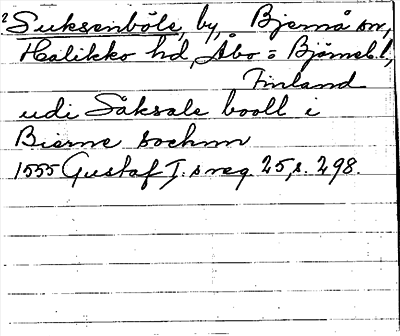 ² Suksenböle, by, Bjernå sn,
Halikko hd, Åbo = Björneb. l,
Finland
udi Såksale booll i
Bierne sochnn
1555 Gustaf I. s reg 25, s. 298.